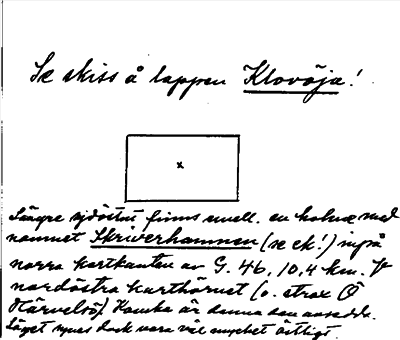 Se skiss å lappen Klovöja!
x
Längre sydöstut finns emell. en holme med
namnet Skriverhamnen (se ek!) inpå
norra kartkanten av G. 46, 10,4 km. fr
nordöstra karthörnet (o. strax Ö
Kärvelsö). Kanske är denna den avsedda.
Läget synes dock vara väl mycket östligt.